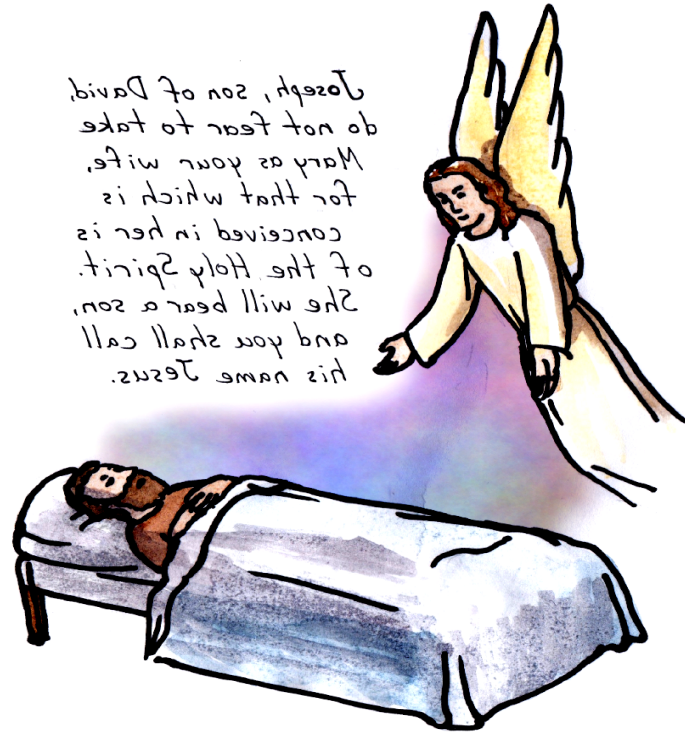 Joseph, son of David,
do not fear to take
Mary as your wife,
for that which is
conceived in her is
of the Holy Spirit.
She will bear a son,
and you shall call
his name Jesus.